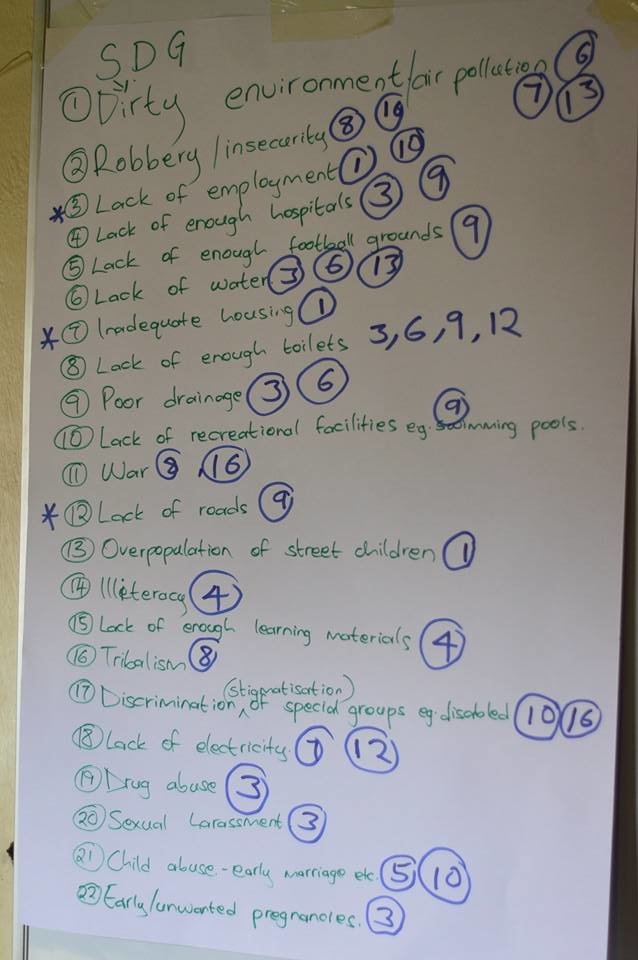 SDG
① Dirty environment/air pollution ⑥
⑦ ⑬
② Robbery/insecurity ⑧ ⑯
* ③ Lack of employment ① ⑩
④ Lack of enough hospitals ③ ⑨
⑤ Lack of enough football grounds ⑨
⑥ Lack of water ③ ⑥ ⑬
* ⑦ Inadequate housing ①
⑧ Lack of enough toilets 3, 6, 9, 12
⑨ Poor drainage ③ ⑥
⑩ Lack of recreational facilities eg. swimming pools. ⑨
⑪ War ⑧, ⑯
* ⑫ Lack of roads ⑨
⑬ Overpopulation of street children ①
⑭ Illiteracy ④
⑮ Lack of enough learning materials ④
⑯ Tribalism ⑧
⑰ Discrimination ^ (stigmatisation) of special groups eg. disabled ⑩ ⑯
⑱ Lack of electricity. ⑦ ⑫
⑲ Drug abuse ③
⑳ Sexual harassment ③
㉑ Child abuse - early marriage etc. ⑤ ⑩
㉒ Early/unwanted pregnancies. ③